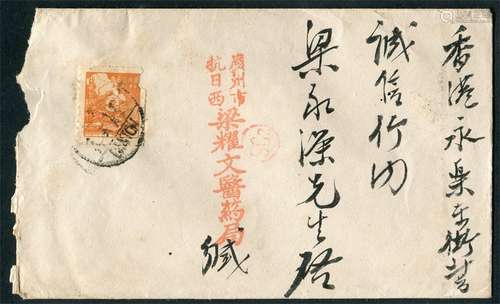 香港永樂東街
誠信行內
梁永深先生啓
廣州市
抗日西
梁耀文醫藥局
緘